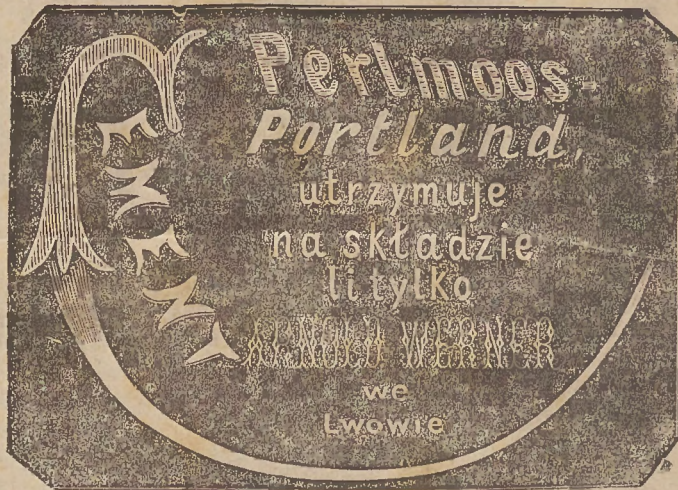 CEMENT
Perlmoos-
Portland,
utrzymuje
na składzie
li tylko
ARNOLD WERNER
we
Lwowie